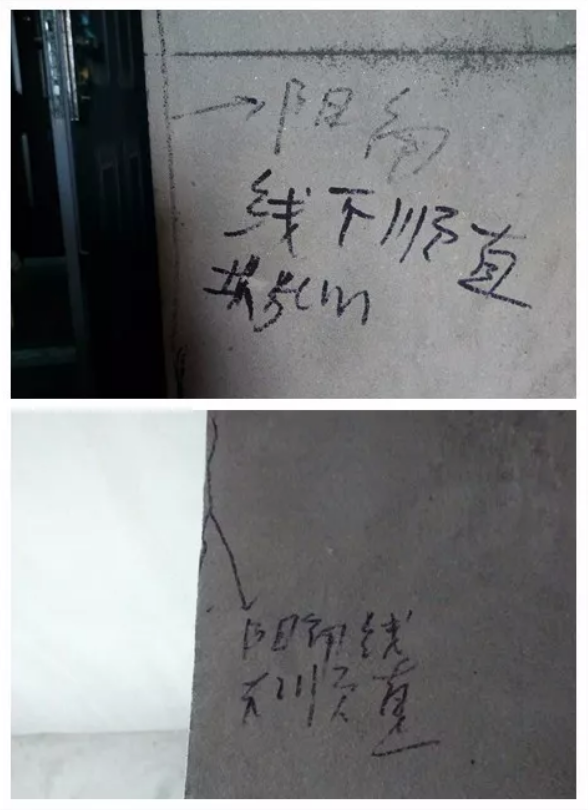 阳角
线下顺直
共5cm
阳角线
不顺直